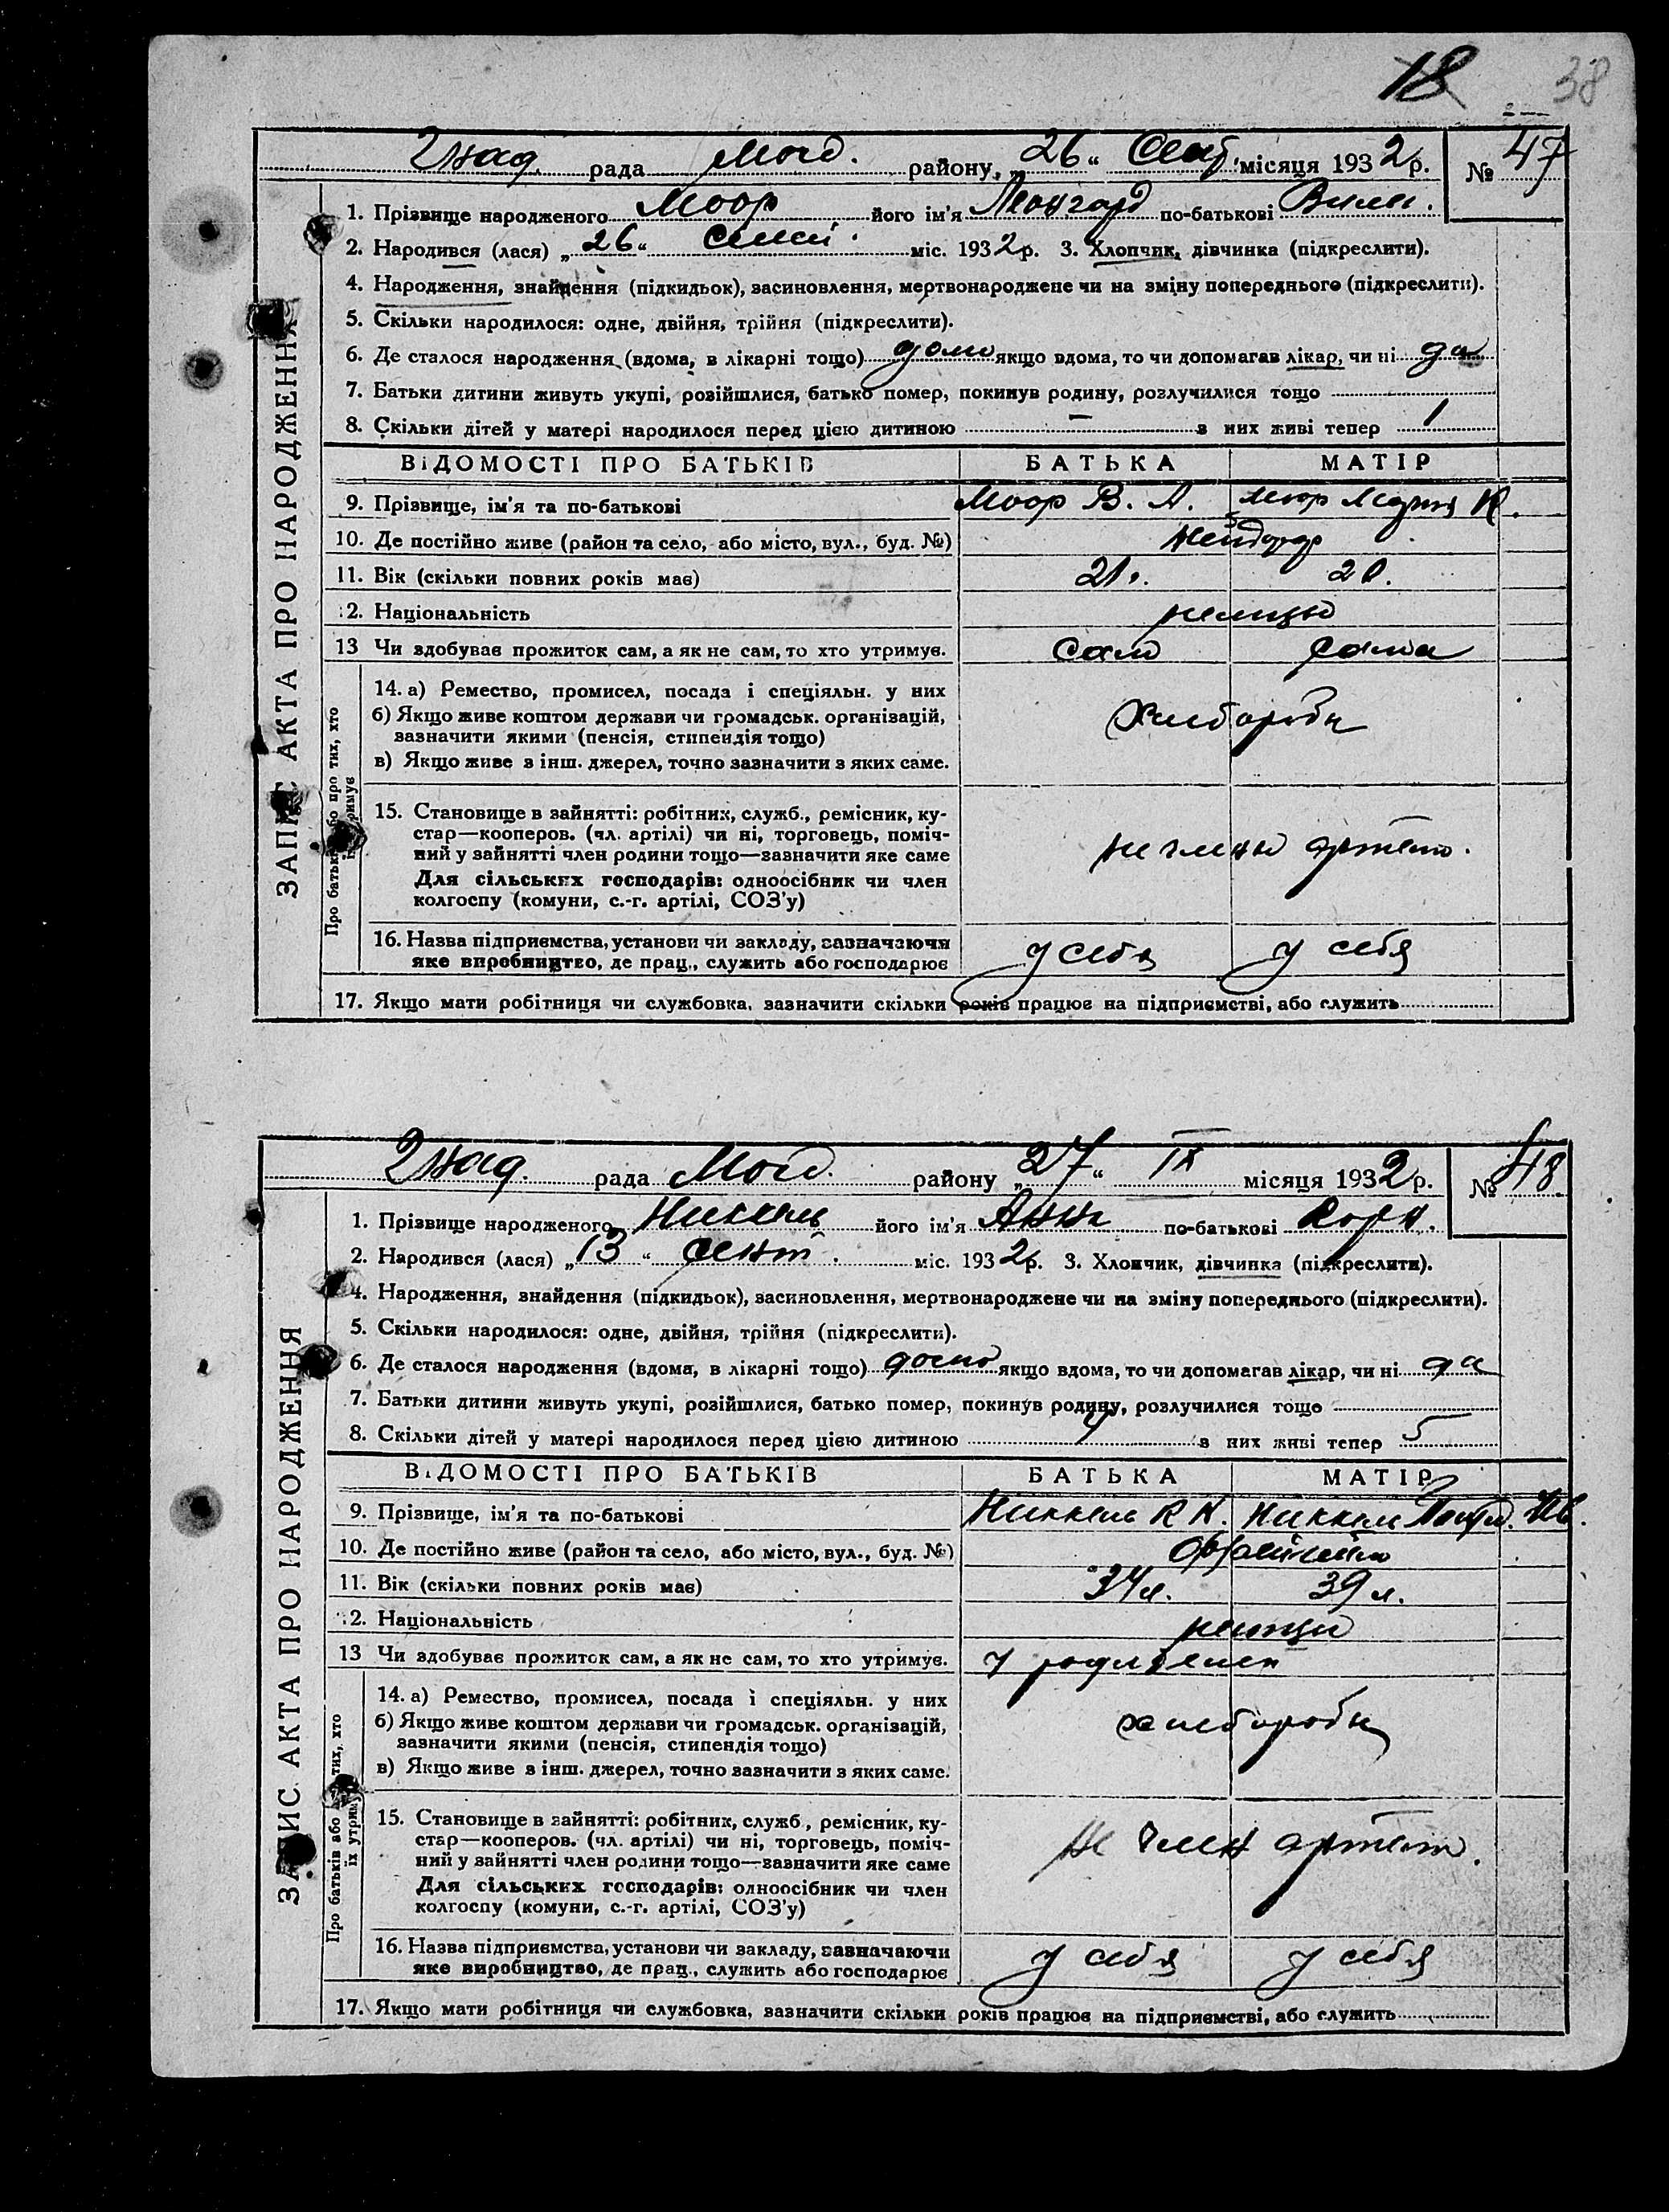 18 38
рада Мол. району, „26“ Сент. місяця 1932 р. № 47
1. Прізвище народженого Моор його ім'я Леонгард по-батькові Вильг.
2. Народився (лася) „26“ міс. 1932 р. 3. Хлопчик, дівчинка (підкреслити).
4. Народження, знайдення (підкидьок), засиновлення, мертвонароджене чи на зміну попереднього (підкреслити).
5. Скільки народилося: одне, двійня, трійня (підкреслити).
6. Де сталося народження (вдома, в лікарні тощо) дома якщо вдома, то чи допомагав лікар, чи ні да
7. Батьки дитини живуть укупі, розійшлися, батько помер, покинув родину, розлучилися тощо
8. Скільки дітей у матері народилося перед цією дитиною – з них живі тепер 1
ВІДОМОСТІ ПРО БАТЬКІВ БАТЬКА МАТІР
9. Прізвище, ім'я та по-батькові Моор В. А. Моор К.
10. Де постійно живе (район та село, або місто, вул., буд. №) Нейдорф
11. Вік (скільки повних років має) 21
12. Національність немцы
13 Чи здобуває прожиток сам, а як не сам, то хто утримує. Сам Сама
14. а) Ремество, промисел, посада і спеціяльн. у них
б) Якщо живе коштом держави чи громадськ. організацій,
зазначити якими (пенсія, стипендія тощо)
в) Якщо живе з інш. джерел, точно зазначити з яких саме.
Хлеборобы
15. Становище в зайнятті: робітник, служб., ремісник, ку-
стар—кооперов. (чл. артілі) чи ні, торговець, поміч-
ний у зайнятті член родини тощо—зазначити яке саме
Для сільських господарів: одноосібник чи член
колгоспу (комуни, с.-г. артілі, СОЗ'у)
не члены артели.
16. Назва підприємства, установи чи закладу, зазначаючи
яке виробництво, де прац., служить або господарює
у себя у себя
17. Якщо мати робітниця чи службовка, зазначити скільки років працює на підприємстві, або служить
ЗАПИС АКТА ПРО НАРОДЖЕННЯ
рада Мол. району „27“ IX місяця 1932 р. № 48.
1. Прізвище народженого Никкель його ім'я Анна по-батькові Корн.
2. Народився (лася) „13“ сент. міс. 1932 р. 3. Хлопчик, дівчинка (підкреслити).
4. Народження, знайдення (підкидьок), засиновлення, мертвонароджене чи на зміну попереднього (підкреслити).
5. Скільки народилося: одне, двійня, трійня (підкреслити).
6. Де сталося народження (вдома, в лікарні тощо) дома якщо вдома, то чи допомагав лікар, чи ні да
7. Батьки дитини живуть укупі, розійшлися, батько помер, покинув родину, розлучилися тощо
8. Скільки дітей у матері народилося перед цією дитиною 4 з них живі тепер 5
ВІДОМОСТІ ПРО БАТЬКІВ БАТЬКА МАТІР
9. Прізвище, ім'я та по-батькові Никкель К К. Никкель Ив.
10. Де постійно живе (район та село, або місто, вул., буд. №)
11. Вік (скільки повних років має) 34 л. 39 л.
12. Національність немцы
13 Чи здобуває прожиток сам, а як не сам, то хто утримує. у
14. а) Ремество, промисел, посада і спеціяльн. у них
б) Якщо живе коштом держави чи громадськ. організацій,
зазначити якими (пенсія, стипендія тощо)
в) Якщо живе з інш. джерел, точно зазначити з яких саме.
хлеборобы
15. Становище в зайнятті: робітник, служб., ремісник, ку-
стар—кооперов. (чл. артілі) чи ні, торговець, поміч-
ний у зайнятті член родини тощо—зазначити яке саме
Для сільських господарів: одноосібник чи член
колгоспу (комуни, с.-г. артілі, СОЗ'у)
не член артели.
16. Назва підприємства, установи чи закладу, зазначаючи
яке виробництво, де прац., служить або господарює
у себя у себя
17. Якщо мати робітниця чи службовка, зазначити скільки років працює на підприємстві, або служить
ЗАПИС АКТА ПРО НАРОДЖЕННЯ